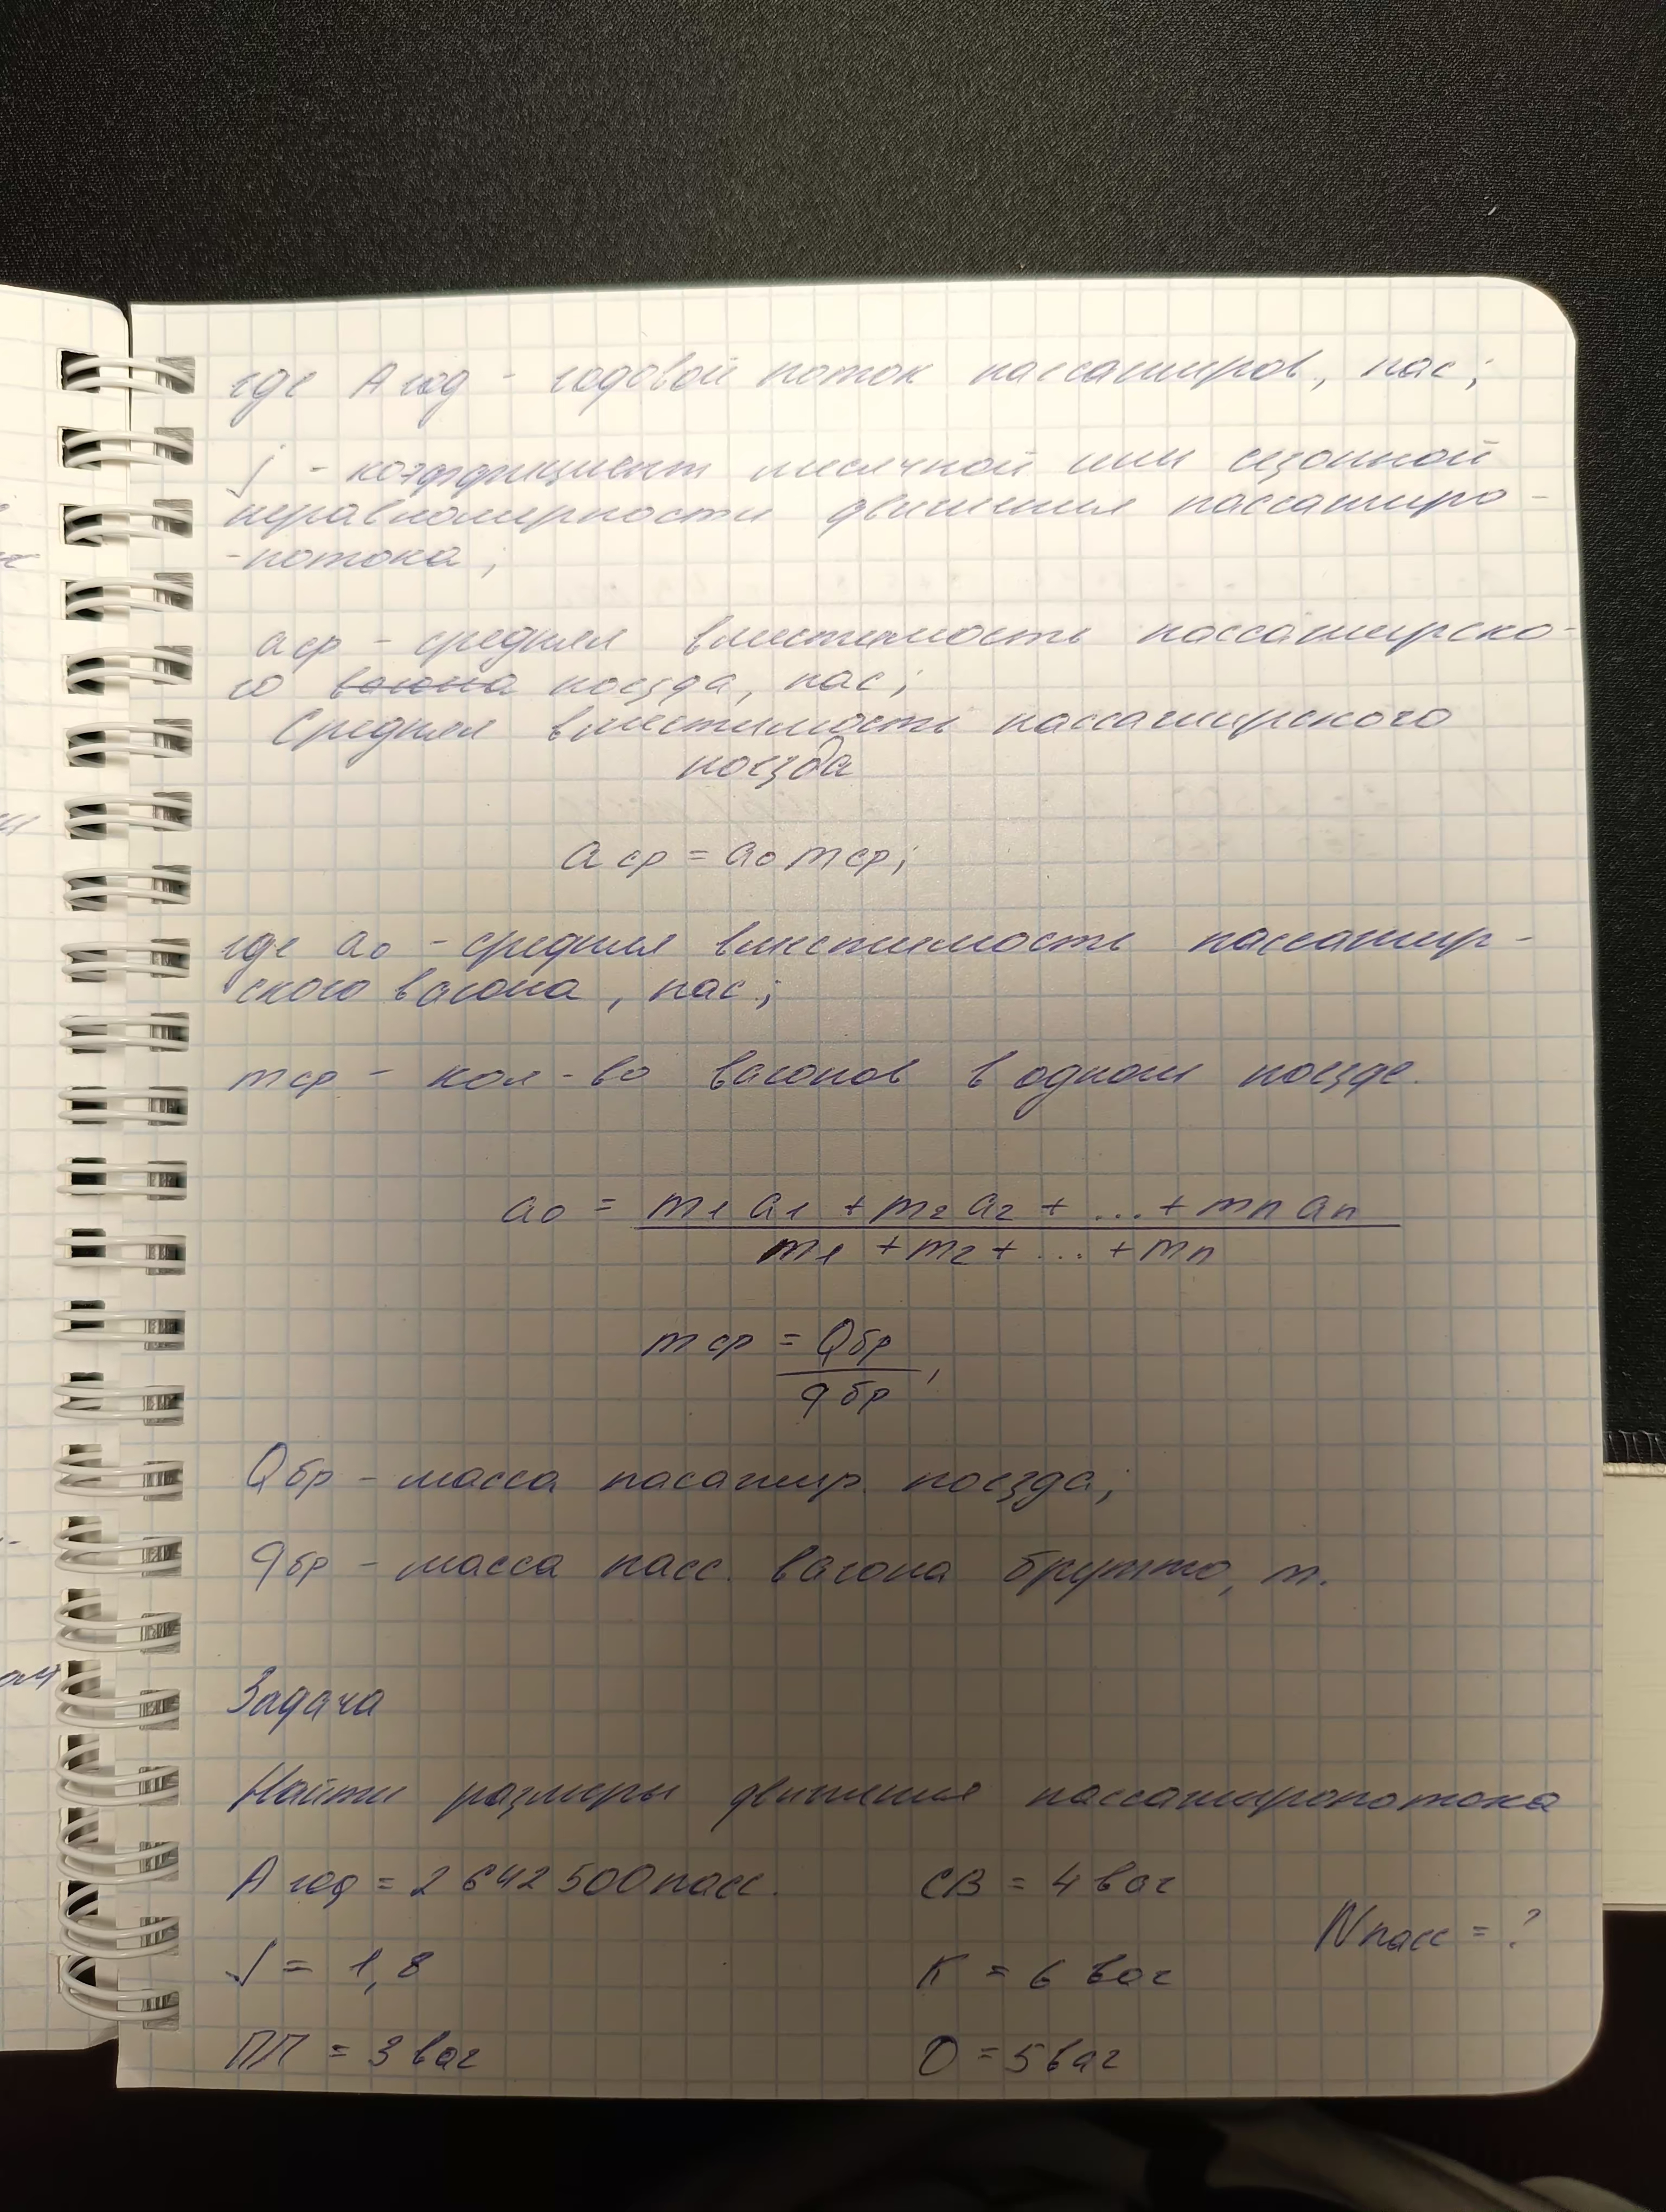 где Aгод - годовой поток пассажиров, пас;
j - коэффициент месячной или сезонной
неравномерности движения пассажиро -
-потока;
aср - средняя вместимость пассажирско-
го вагона поезда, пас;
Средняя вместимость пассажирского
поезда
aср = a₀ mср;
где a₀ - средняя вместимость пассажир-
ского вагона, пас;
mср - кол-во вагонов в одном поезде.
a₀ = m₁ a₁ + m₂ a₂ + ... + mn an
m₁ + m₂ + ... + mn
mср = Qбр
qбр,
Qбр - масса пасажир. поезда;
qбр - масса пасс. вагона брутто, т.
Задача
Найти размеры движения пассажиропотока
Aгод = 2 642 500 пасс. СВ = 4 ваг
Nпасс = ?
j = 1,8 К = 6 ваг
ПЛ = 3 ваг О = 5 ваг